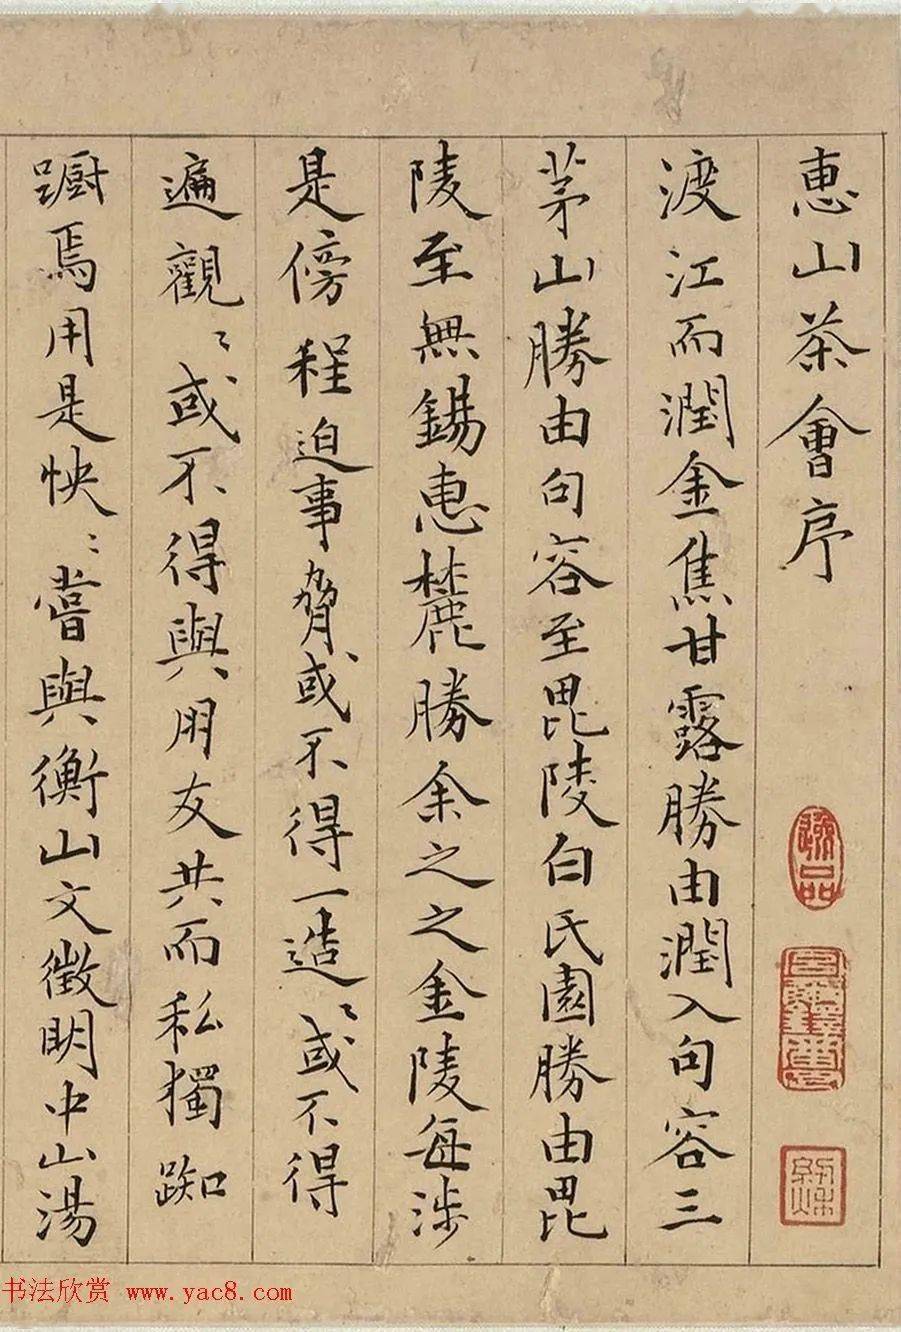 惠山茶會序
渡江而潤金焦甘露勝由潤入句容三
茅山勝由句容至毘陵白氏園勝由毘
陵至無錫惠麓勝余之之金陵每涉
是傍程迫事脅或不得一造〻或不得
遍觀〻或不得與朋友共而私獨踟
躕焉用是怏〻嘗與衡山文徵明中山湯
书法欣赏 www.yac8.com